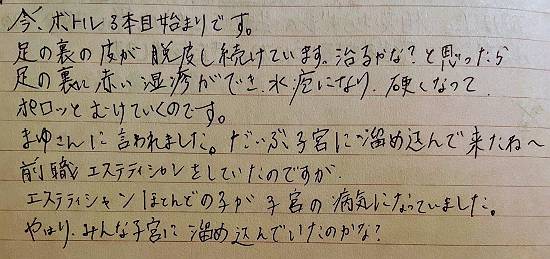 今、ボトル3本目始まりです。
足の裏の皮が脱皮し続けています。治るかな?と思ったら
足の裏に赤い湿疹ができ、水疱になり、硬くなって
ポロッとむけていくのです。
まゆさんに言われました。だいぶ子宮に溜め込んで来たね〜
前職エステティシャンをしていたのですが、
エステティシャンほとんどの子が子宮の病気になっていました。
やはり、みんな子宮に溜め込んでいたのかな?